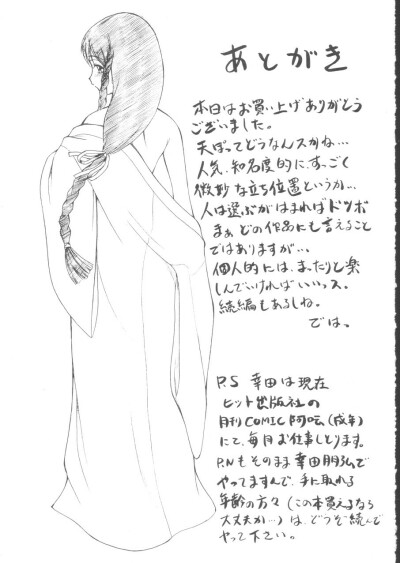 あとがき
本日はお買い上げありがとう
ございました。
天ぽってどうなんスかね…
人気、知名度的に、すっごく
微妙な立ち位置というか…
人は選ぶがはまればドツボ
まぁ、どの作品にも言えること
ではありますが…。
個人的には、まったりと楽
しんでいければいいっス。
続編もあるしね。
では。
P.S 幸田は現在
ヒット出版社の
月刊COMIC阿吽(成年)
にて、毎月お仕事しとります。
P.Nもそのまま幸田朋弘で
やってますんで、手に取れる
年齢の方々(この本買えるなら
大丈夫か…)は、どうぞ続んで
やって下さい。